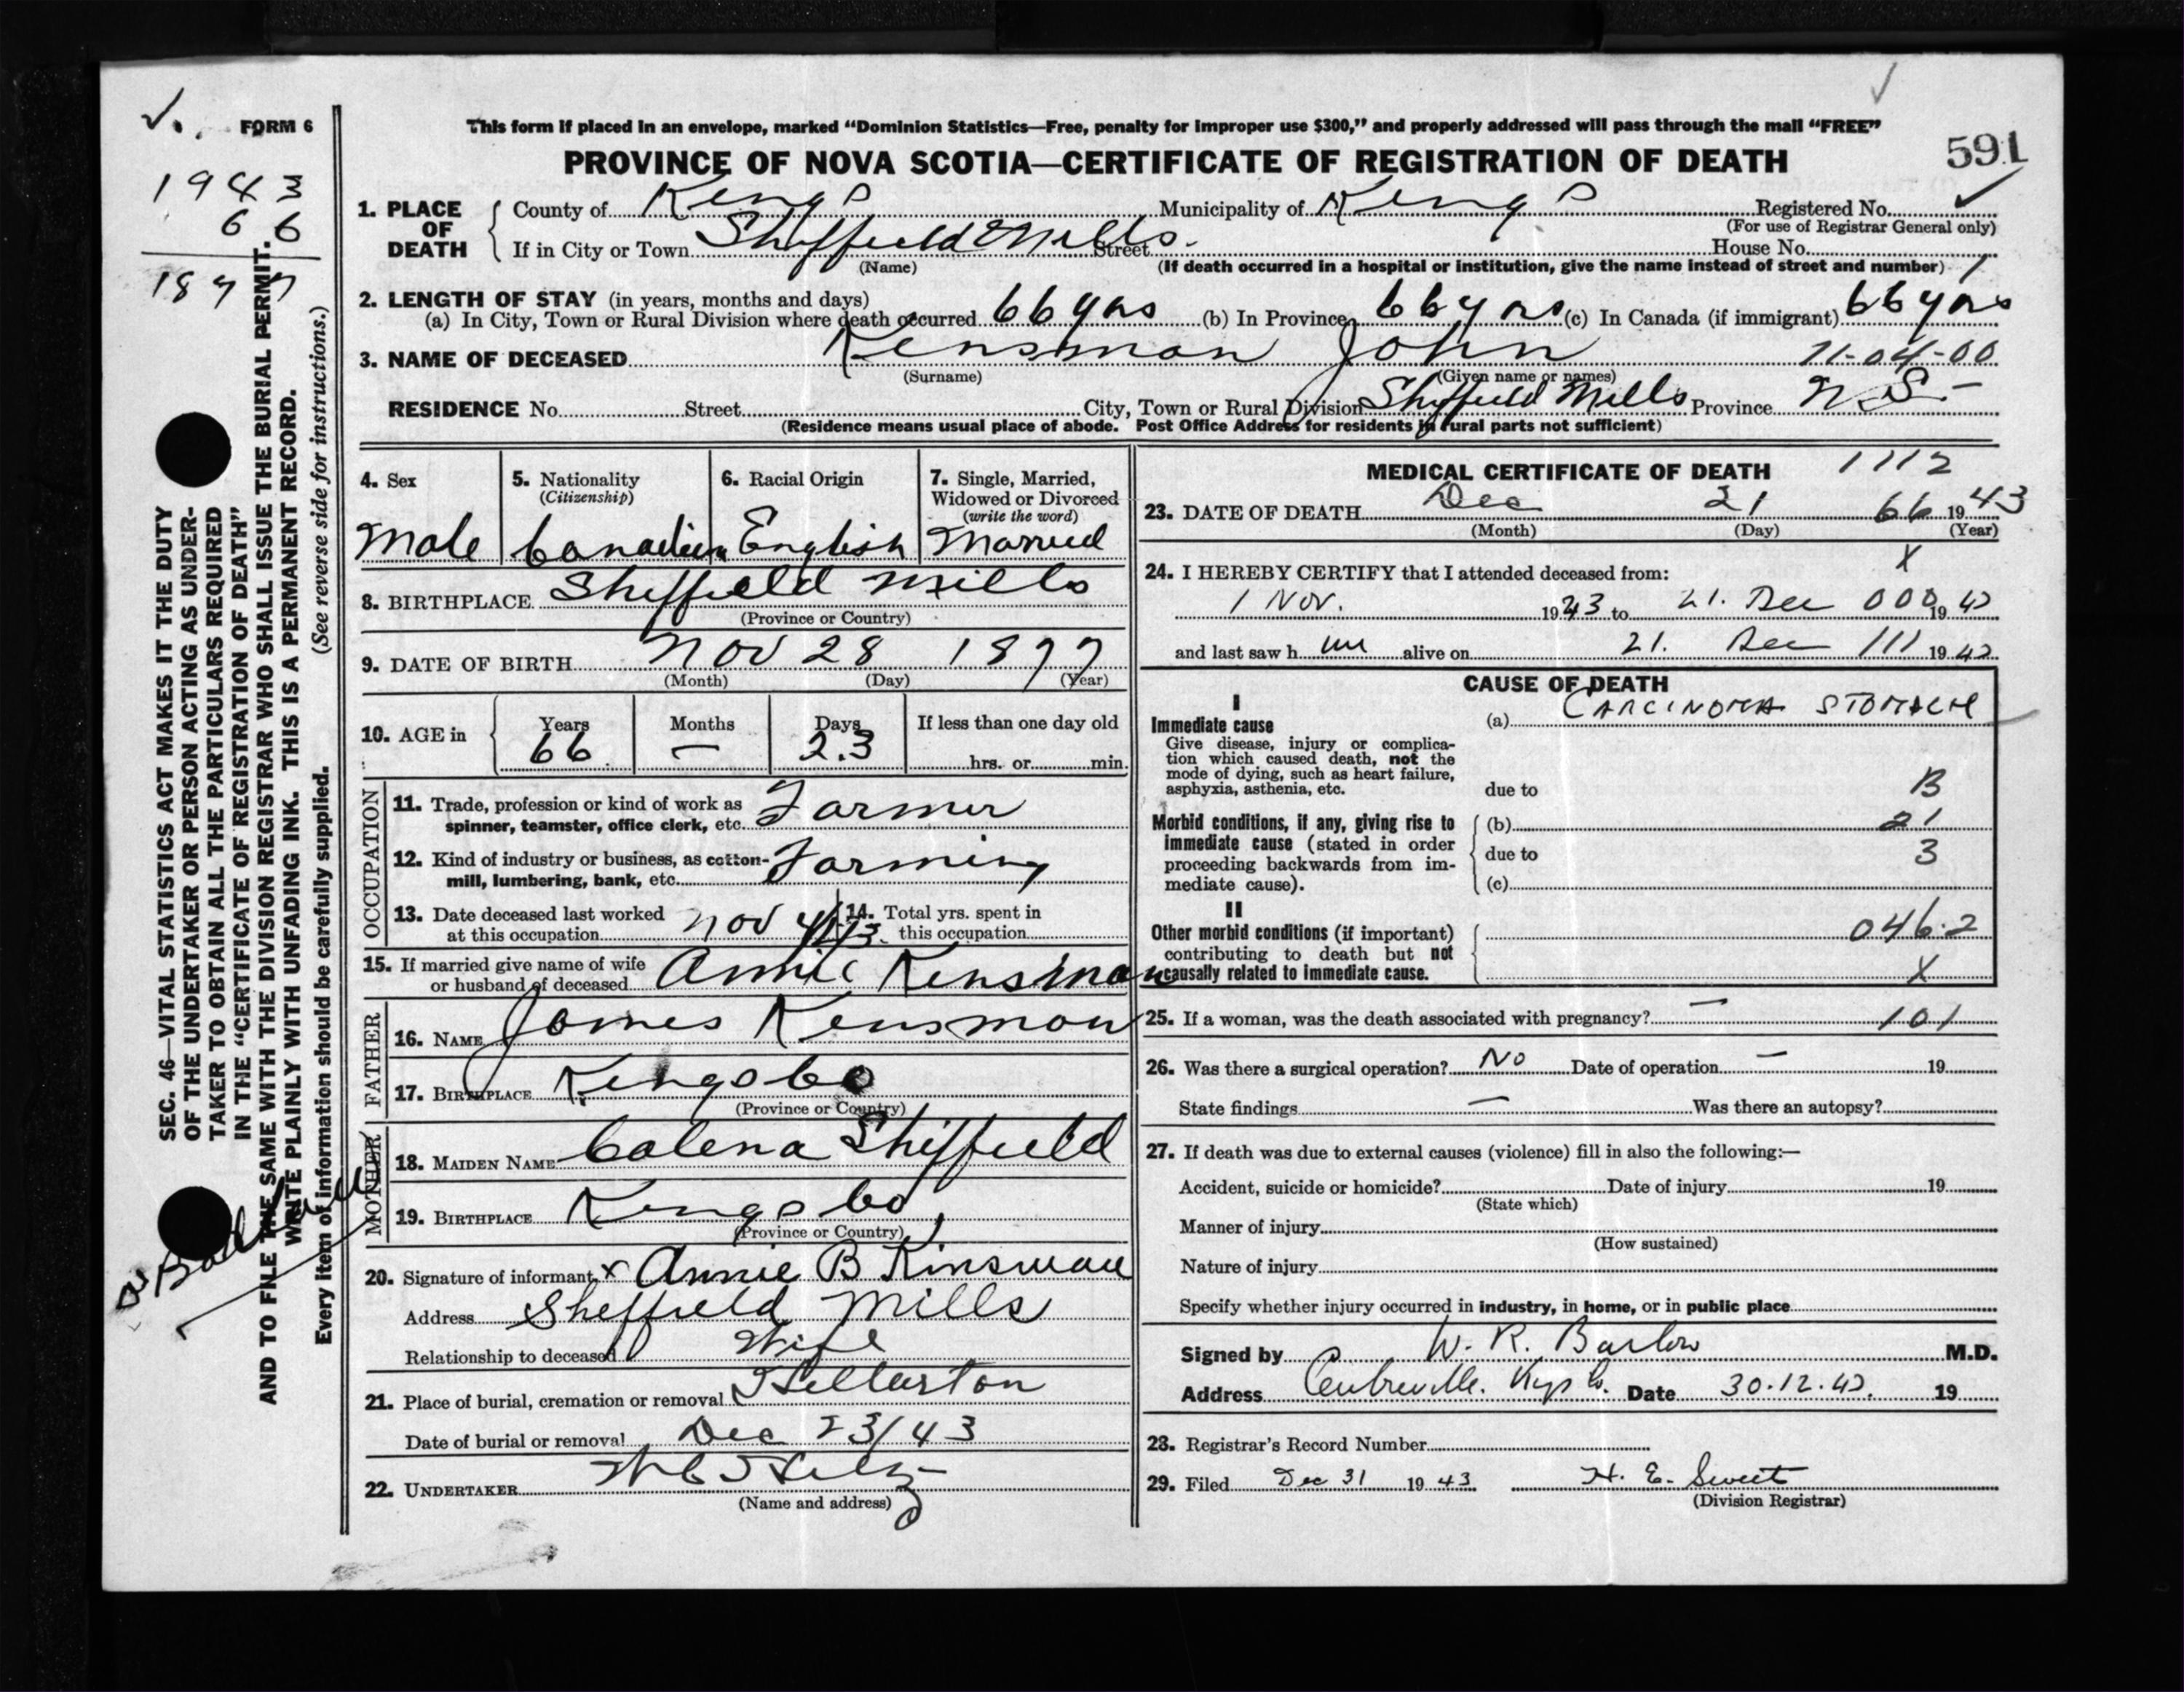 FORM 6
This form if placed in an envelope, marked "Dominion Statistics—Free, penalty for improper use $300," and properly addressed will pass through the mail "FREE"
PROVINCE OF NOVA SCOTIA—CERTIFICATE OF REGISTRATION OF DEATH
591
1943
66
1877
1. PLACE OF DEATH
County of Kings Municipality of Kings Registered No.
(For use of Registrar General only)
If in City or Town Sheffield Mills. Street House No.
(Name) (If death occurred in a hospital or institution, give the name instead of street and number) 1
2. LENGTH OF STAY (in years, months and days)
(a) In City, Town or Rural Division where death occurred 66 yrs (b) In Province 66 yrs (c) In Canada (if immigrant) 66 yrs
3. NAME OF DECEASED Kinsman John 11-04-00
(Surname) (Given name or names)
RESIDENCE No. Street City, Town or Rural Division Sheffield Mills Province N.S.-
(Residence means usual place of abode. Post Office Address for residents in rural parts not sufficient)
4. Sex
Male
5. Nationality
(Citizenship)
Canadian
6. Racial Origin
English
7. Single, Married,
Widowed or Divorced
(write the word)
Married
8. BIRTHPLACE Sheffield Mills
(Province or Country)
9. DATE OF BIRTH Nov 28 1877
(Month) (Day) (Year)
10. AGE in
Years Months Days If less than one day old
66 — 23 hrs. or min.
OCCUPATION
11. Trade, profession or kind of work as
spinner, teamster, office clerk, etc. Farmer
12. Kind of industry or business, as cotton-
mill, lumbering, bank, etc. Farming
13. Date deceased last worked
at this occupation Nov
14. Total yrs. spent in
this occupation
15. If married give name of wife
or husband of deceased Annie Kinsman
FATHER
16. NAME James Kinsman
17. BIRTHPLACE Kings Co
(Province or Country)
MOTHER
18. MAIDEN NAME Calena Sheffield
19. BIRTHPLACE Kings Co
(Province or Country)
20. Signature of informant x Annie B Kinsman
Address Sheffield Mills
Relationship to deceased Wife
21. Place of burial, cremation or removal
Date of burial or removal Dec 23/43
22. UNDERTAKER
(Name and address)
MEDICAL CERTIFICATE OF DEATH 1112
23. DATE OF DEATH Dec 21 66 1943
(Month) (Day) (Year)
X
24. I HEREBY CERTIFY that I attended deceased from:
1 Nov. 1943 to 21. Dec 000 1943
and last saw h im alive on 21. Dec 111 1943
CAUSE OF DEATH
I
Immediate cause
Give disease, injury or complica-
tion which caused death, not the
mode of dying, such as heart failure,
asphyxia, asthenia, etc.
(a) CARCINOMA STOMACH
due to B
Morbid conditions, if any, giving rise to
immediate cause (stated in order
proceeding backwards from im-
mediate cause).
(b) 21
due to 3
(c)
II
Other morbid conditions (if important)
contributing to death but not
causally related to immediate cause.
046.2
X
25. If a woman, was the death associated with pregnancy? — 101
26. Was there a surgical operation? No Date of operation — 19
State findings — Was there an autopsy?
27. If death was due to external causes (violence) fill in also the following:—
Accident, suicide or homicide? Date of injury 19
(State which)
Manner of injury
(How sustained)
Nature of injury
Specify whether injury occurred in industry, in home, or in public place
Signed by W. R. Barlow M.D.
Address Centreville. Kgs Co. Date 30.12.43. 19
28. Registrar's Record Number
29. Filed Dec 31 1943 H. E. Sweet
(Division Registrar)
SEC. 46—VITAL STATISTICS ACT MAKES IT THE DUTY
OF THE UNDERTAKER OR PERSON ACTING AS UNDER-
TAKER TO OBTAIN ALL THE PARTICULARS REQUIRED
IN THE "CERTIFICATE OF REGISTRATION OF DEATH"
AND TO FILE THE SAME WITH THE DIVISION REGISTRAR WHO SHALL ISSUE THE BURIAL PERMIT.
WRITE PLAINLY WITH UNFADING INK. THIS IS A PERMANENT RECORD.
Every item of information should be carefully supplied. (See reverse side for instructions.)